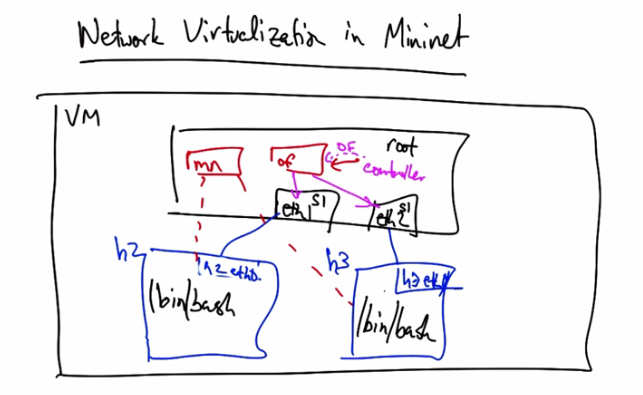 Network Virtualization in Mininet
VM
root
mn
of
OF
controller
eth1 S1
eth2 S1
h2
h2-eth0
h3
h3 eth0
/bin/bash
/bin/bash